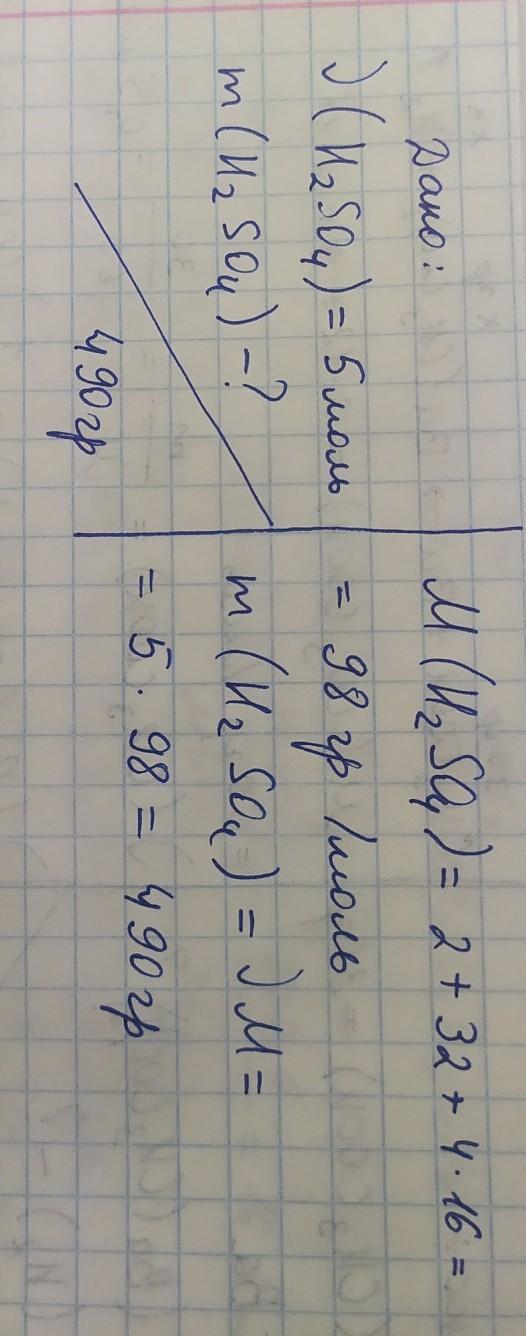 Дано:
ν (H₂SO₄) = 5 моль
m (H₂SO₄) - ?
490 гр
M (H₂SO₄) = 2 + 32 + 4 · 16 =
= 98 гр /моль
m (H₂SO₄) = ν M =
= 5 · 98 = 490 гр